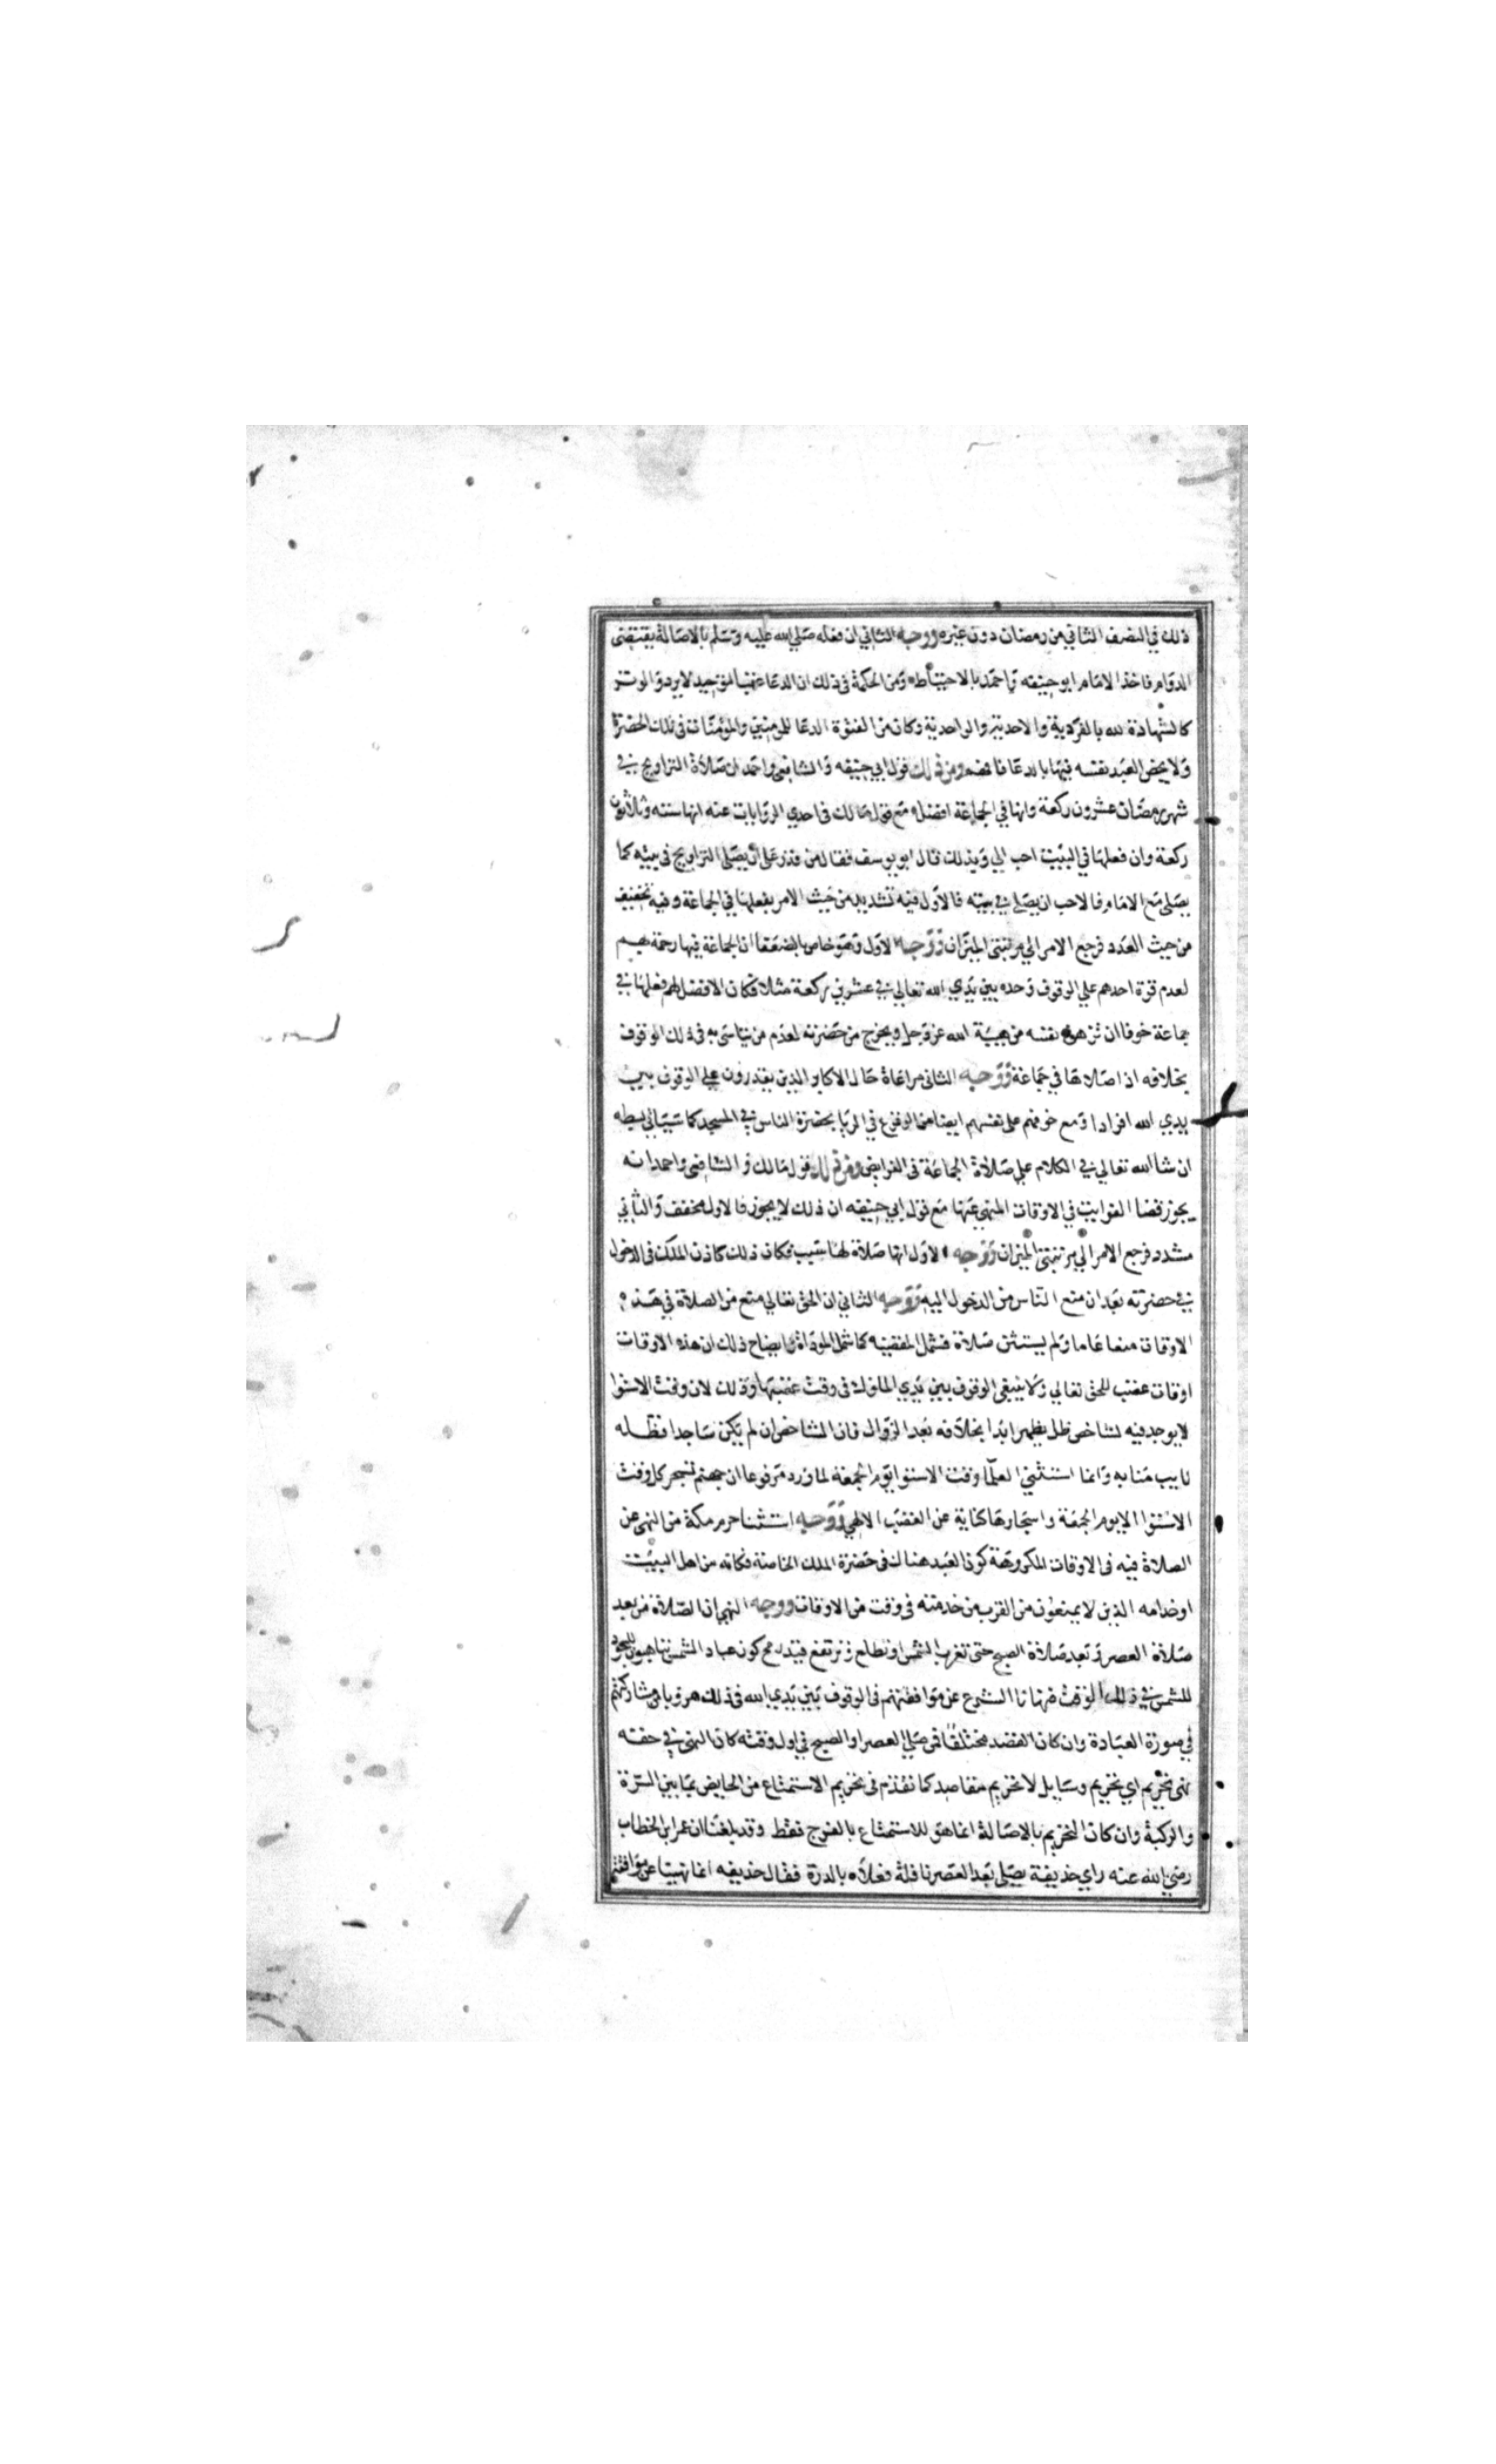 ذلك في النصف الثاني من رمضان دون غيره ووجه الثاني ان فعله صلي الله عليه وسلم بالاصالة يقتضي
الدوام فاخذ الامام ابو حنيفه واحمد بالاحتياط ومن الحكمة في ذلك ان الدعا عقب التوحيد لا يرد والوتر
كالشهادة لله بالفردية والاحدية والواحدية وكان من الفتوة الدعا للمومنين والمؤمنات في تلك الحضرة
ولا يخص العبد نفسه فيها بالدعا فافهم ومن ذلك قول ابي حنيفه والشافعي واحمد ان صلاة التراويح في
شهر رمضان عشرون ركعة وانها في الجماعة افضل مع قول مالك في احدي الروايات عنه انها ستة وثلاثون
ركعة وان فعلها في البيت احب الي وبذلك قال ابو يوسف فقال من قدر علي ان يصلي التراويح في بيته كما
يصلي مع الامام فالاحب ان يصلي في بيته فالاول فيه تشديد من حيث الامر بفعلها في الجماعة وفيه تخفيف
من حيث العدد فرجع الامر الي مرتبتي الميزان ووجه الاول وهو خاص بالضعفا ان الجماعة فيها رحمة بهم
لعدم قوة احدهم علي الوقوف وحده بين يدي الله تعالي في عشرين ركعة مثلا فكان الافضل لهم فعلها في
جماعة خوفا ان تزهق نفسه من هيبة الله عز وجل ويخرج من حضرته لعدم من يتاسي به في ذلك الوقوف
بخلافه اذا صلاها في جماعة ووجه الثاني مراعاة حال الاكابر الذين يقدرون علي الوقوف بين
يدي الله افرادا ومع خوفهم علي نفسهم ايضا من الوقوع في الريا بحضرة الناس في المسجد كما سياتي بسطه
ان شا الله تعالي في الكلام علي صلاة الجماعة في الفرايض ومن ذلك قول مالك والشافعي واحمد انه
يجوز قضا الفوايت في الاوقات المنهي عنها مع قول ابي حنيفه ان ذلك لا يجوز فالاول مخفف والثاني
مشدد فرجع الامر الي مرتبتي الميزان ووجه الاول انها صلاة لها سبب فكان ذلك كاذن الملك في الدخول
في حضرته بعد ان منع الناس من الدخول اليه ووجه الثاني ان الحق تعالي منع من الصلاة في هذه
الاوقات منعا عاما ولم يستثن صلاة فشمل المقضيه كما شمل المؤداة وايضاح ذلك ان هذه الاوقات
اوقات غضب للحق تعالي ولا ينبغي الوقوف بين يدي الملوك في وقت غضبها وذلك لان وقت الاستوا
لا يوجد فيه لشاخص ظل يظهر ابدا بخلافه بعد الزوال فان الشاخص ان لم يكن ساجدا فظله
نايب منابه وانما استثني العلما وقت الاستوا يوم الجمعة لما ورد مرفوعا ان جهنم تسجر كل وقت
الاستوا الا يوم الجمعة واسجارها كناية عن الغضب الالهي ووجه استثنا حرم مكة من النهي عن
الصلاة فيه في الاوقات المكروهة كون العبد هناك في حضرة الملك الخاصة فكانه من اهل البيت
او خدامه الذين لا يمنعون من القرب من خدمته في وقت من الاوقات ووجه النهي ان الصلاة من بعد
صلاة العصر وبعد صلاة الصبح حتي تغرب الشمس او تطلع وترتفع قيد رمح كون عباد الشمس يتاهبون للسجود
للشمس في ذلك الوقت فنهانا الشرع عن موافقتهم في الوقوف بين يدي الله في ذلك هروبا من مشاركتهم
في صورة العبادة وان كان القصد مختلفا فمن صلي العصر او الصبح في اول وقته كان النهي في حقه
نهي تحريم اي تحريم وسايل لا تحريم مقاصد كما تقدم في تحريم الاستمتاع من الحايض بما بين السرة
والركبة وان كان التحريم بالاصالة انما هو للاستمتاع بالفرج فقط وقد بلغنا ان عمر ابن الخطاب
رضي الله عنه راي حذيفة يصلي بعد العصر نافلة فعلاه بالدرة فقال حذيفه انما نهينا عن موافقتهم